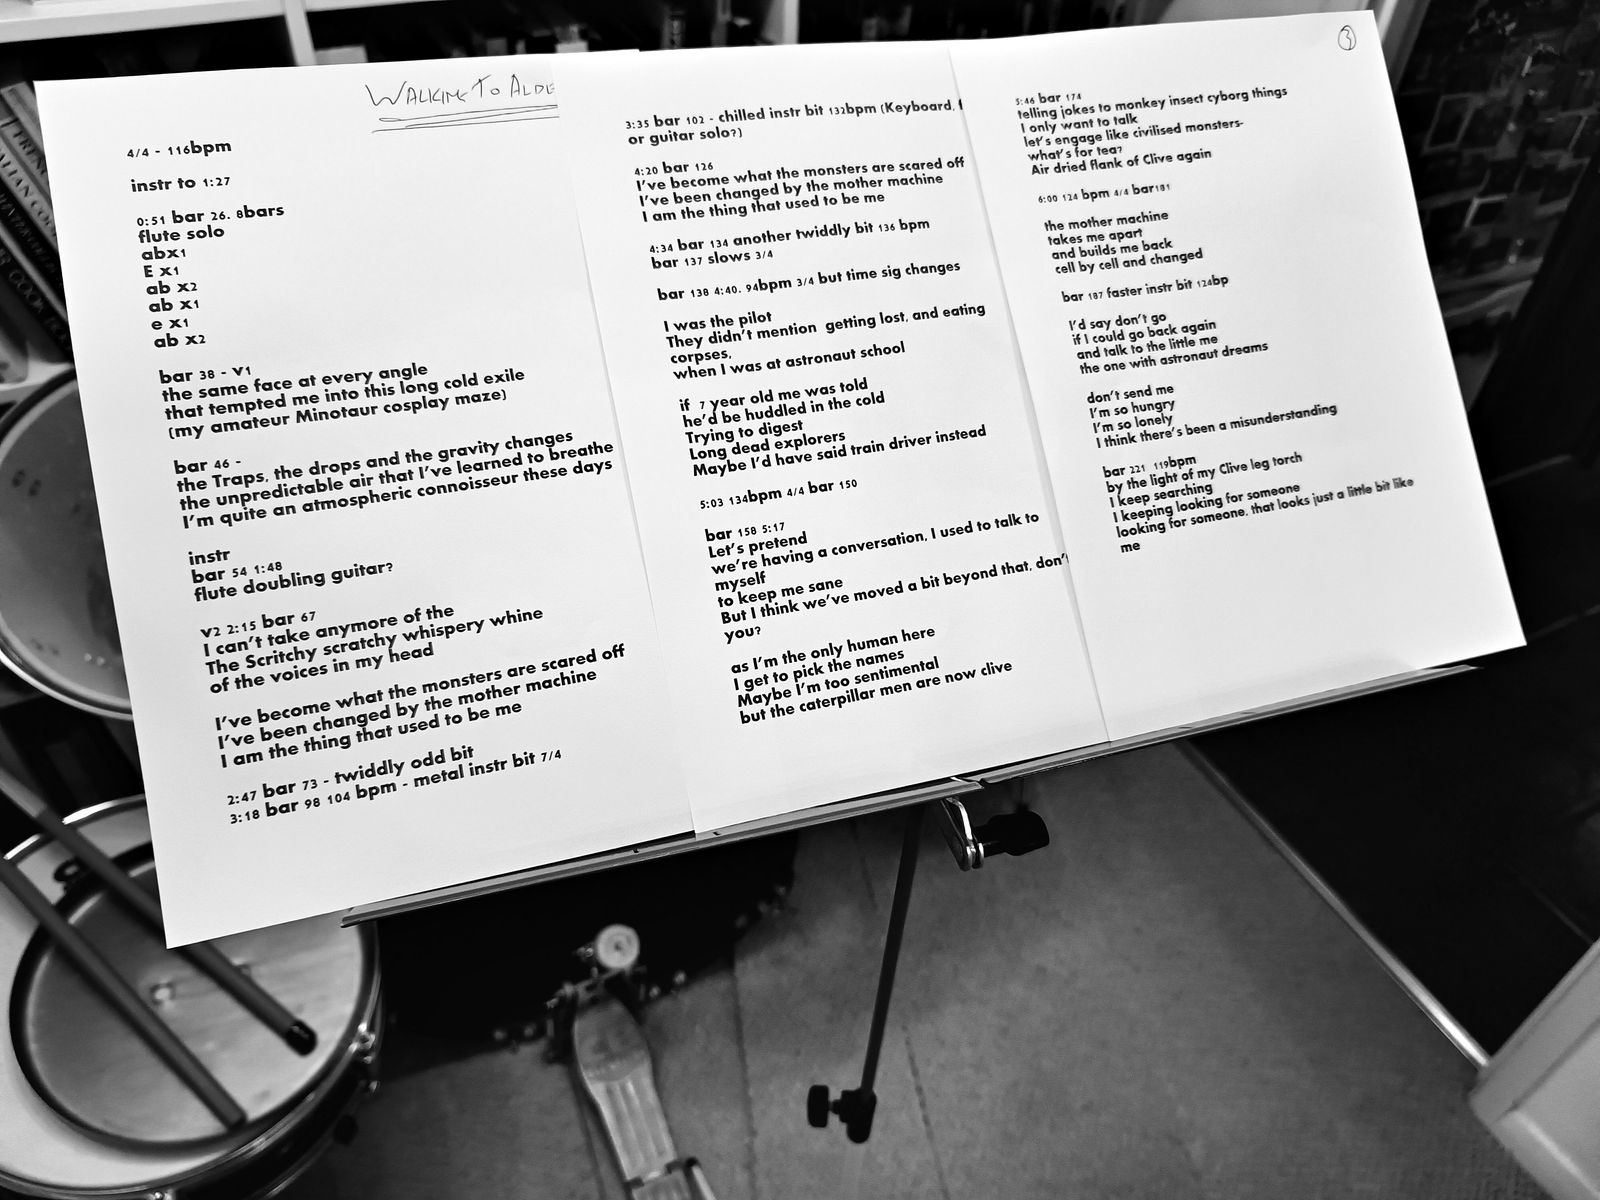 WALKING TO ALDE
4/4 - 116bpm
instr to 1:27
0:51 bar 26. 8bars
flute solo
abx1
E x1
ab x2
ab x1
e x1
ab x2
bar 38 - v1
the same face at every angle
that tempted me into this long cold exile
(my amateur Minotaur cosplay maze)
bar 46 -
the Traps, the drops and the gravity changes
the unpredictable air that I've learned to breathe
I'm quite an atmospheric connoisseur these days
instr
bar 54 1:48
flute doubling guitar?
v2 2:15 bar 67
I can't take anymore of the
The Scritchy scratchy whispery whine
of the voices in my head
I've become what the monsters are scared off
I've been changed by the mother machine
I am the thing that used to be me
2:47 bar 73 - twiddly odd bit
3:18 bar 98 104 bpm - metal instr bit 7/4
3:35 bar 102 - chilled instr bit 132bpm (Keyboard,
or guitar solo?)
4:20 bar 126
I've become what the monsters are scared off
I've been changed by the mother machine
I am the thing that used to be me
4:34 bar 134 another twiddly bit 136 bpm
bar 137 slows 3/4
bar 138 4:40. 94bpm 3/4 but time sig changes
I was the pilot
They didn't mention getting lost, and eating
corpses,
when I was at astronaut school
if 7 year old me was told
he'd be huddled in the cold
Trying to digest
Long dead explorers
Maybe I'd have said train driver instead
5:03 134bpm 4/4 bar 150
bar 158 5:17
Let's pretend
we're having a conversation, I used to talk to
myself
to keep me sane
But I think we've moved a bit beyond that, don't
you?
as I'm the only human here
I get to pick the names
Maybe I'm too sentimental
but the caterpillar men are now clive
3
5:46 bar 174
telling jokes to monkey insect cyborg things
I only want to talk
let's engage like civilised monsters-
what's for tea?
Air dried flank of Clive again
6:00 124 bpm 4/4 bar181
the mother machine
takes me apart
and builds me back
cell by cell and changed
bar 187 faster instr bit 124bp
I'd say don't go
if I could go back again
and talk to the little me
the one with astronaut dreams
don't send me
I'm so hungry
I'm so lonely
I think there's been a misunderstanding
bar 221 119bpm
by the light of my Clive leg torch
I keep searching
I keeping looking for someone
looking for someone, that looks just a little bit like
me